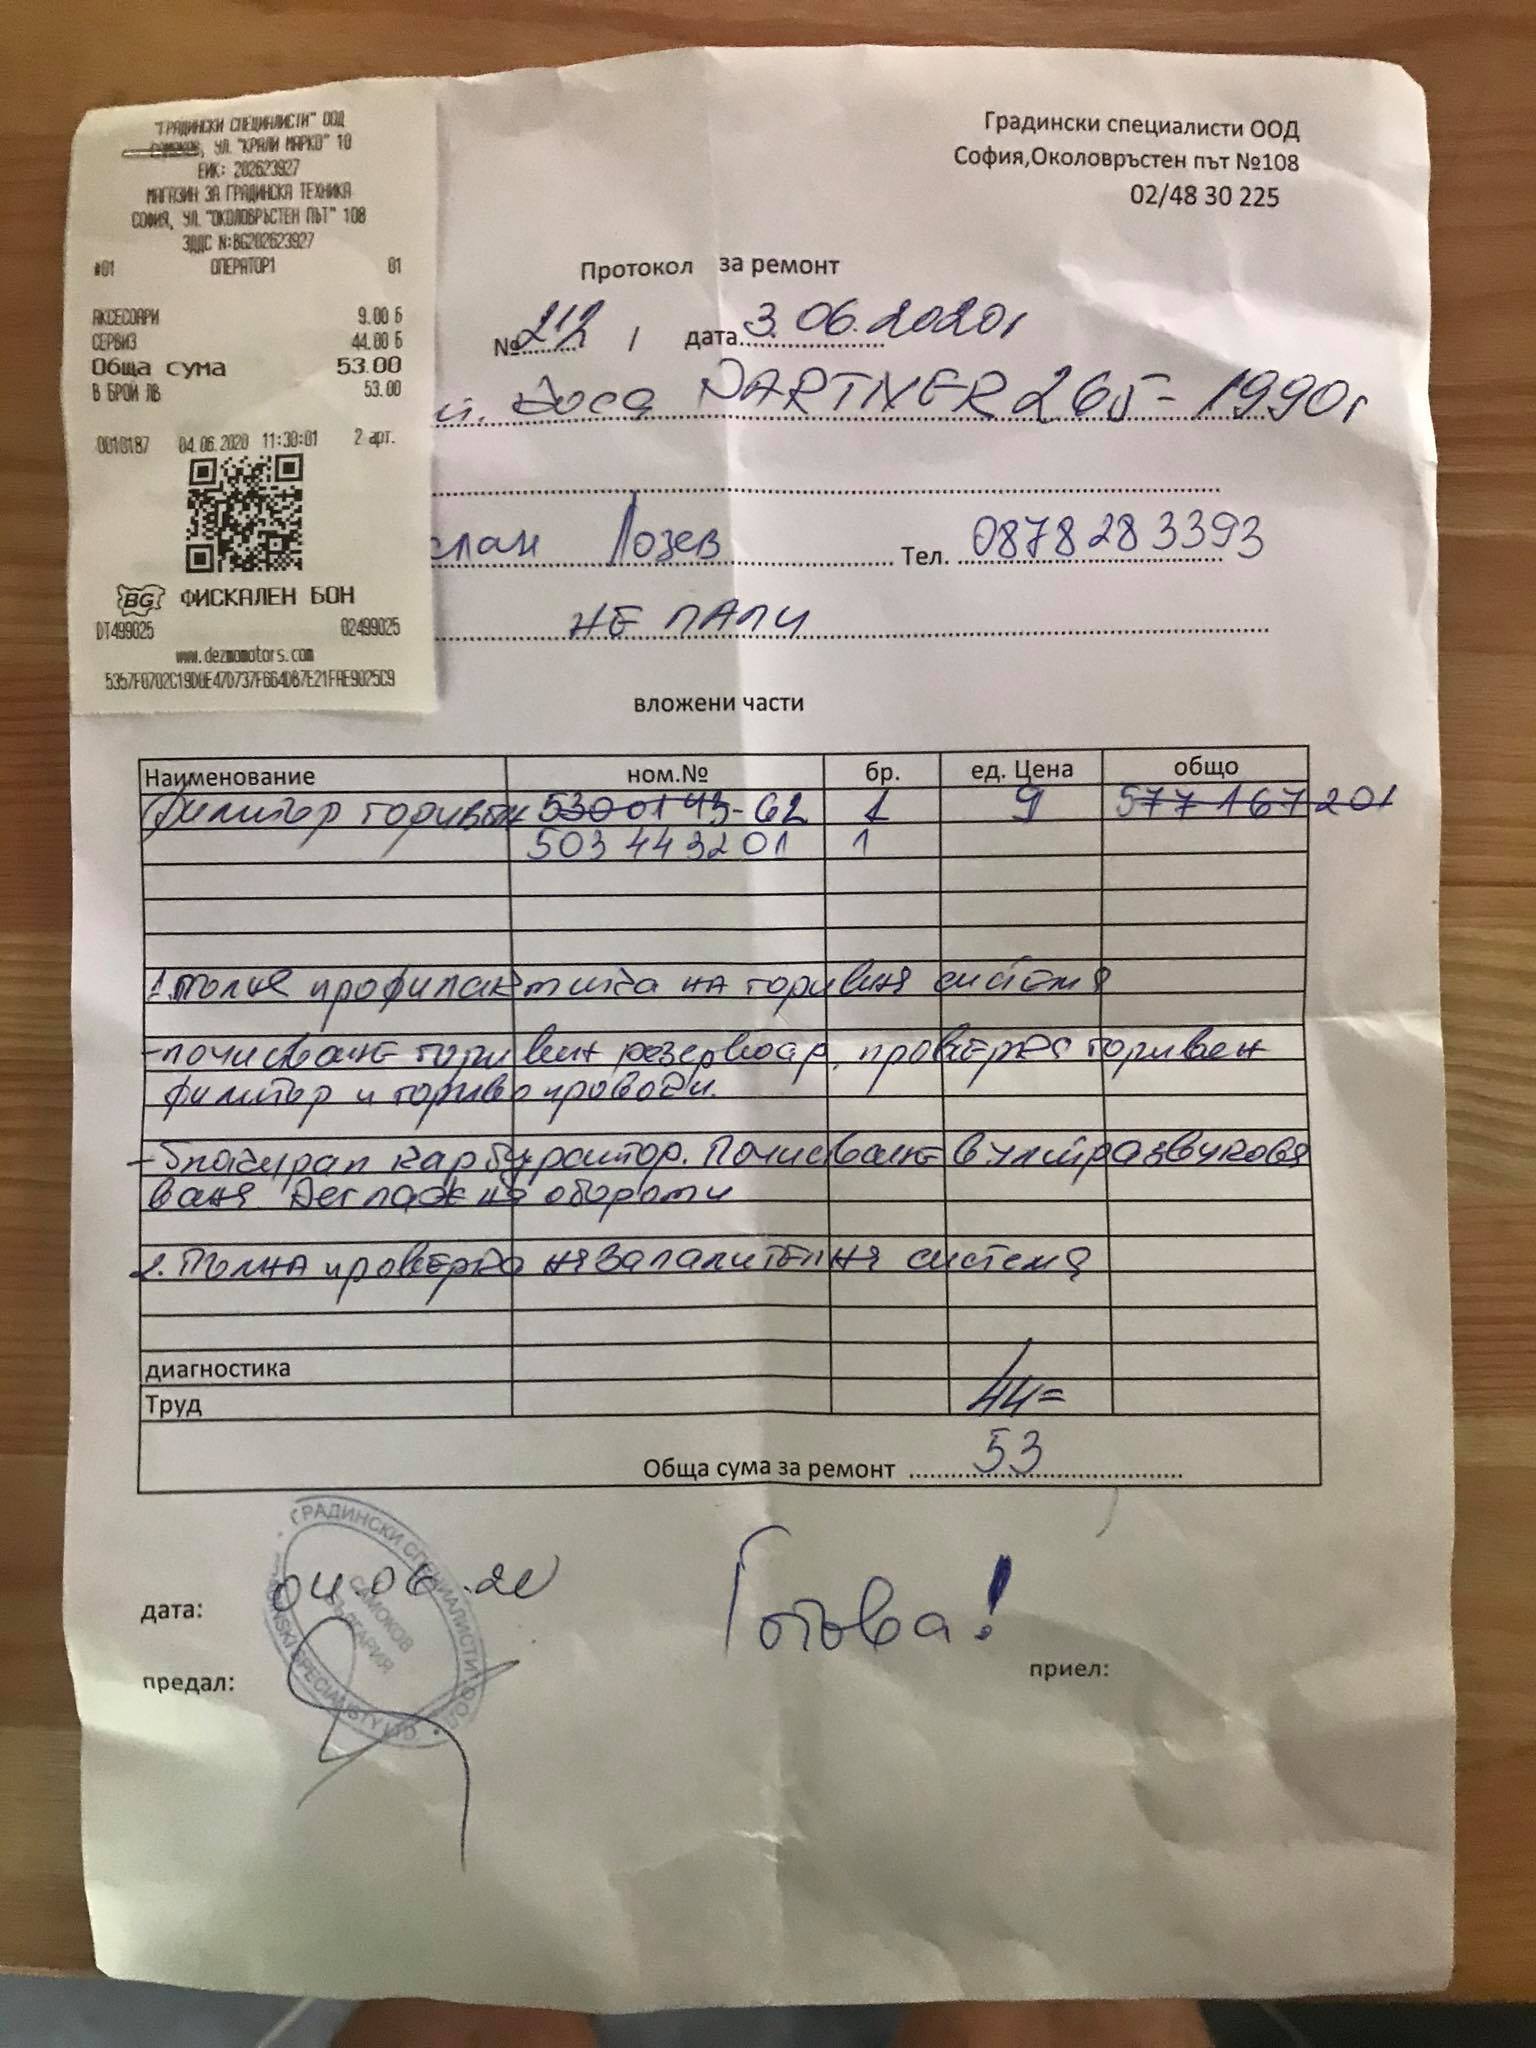 "ГРАДИНСКИ СПЕЦИАЛИСТИ" ООД
САМОКОВ, УЛ. "КРАЛИ МАРКО" 10
ЕИК: 202623927
МАГАЗИН ЗА ГРАДИНСКА ТЕХНИКА
СОФИЯ, УЛ. "ОКОЛОВРЪСТЕН ПЪТ" 108
ЗДДС N:BG202623927
#01 ОПЕРАТОР1 01
АКСЕСОАРИ 9.00 Б
СЕРВИЗ 44.00 Б
Обща сума 53.00
В БРОЙ ЛВ 53.00
0010187 04.06.2020 11:30:01 2 арт.
BG ФИСКАЛЕН БОН
DT499025 02499025
www.dezmomotors.com
Градински специалисти ООД
София,Околовръстен път №108
02/48 30 225
Протокол за ремонт
№ 212 / дата 3.06.2020г
коса PARTNER 265 - 1990г
слан Лозев Тел. 0878283393
НЕ ПАЛИ
вложени части
Наименование ном.№ бр. ед. Цена общо
Филтър горивен 5300143-62 1 9 577167201
503443201 1
1. Пълна профилактика на горивна система
- почистване горивен резервоар, проверка горивен
филтър и горивопроводи.
- карбуратор. Почистване в ултразвукова
вана. Регулаж на обороти
2. Пълна проверка на запалителна система
диагностика
Труд 44=
Обща сума за ремонт 53
ГРАДИНСКИ СПЕЦИАЛИСТИ ООД
САМОКОВ
БЪЛГАРИЯ
GARDENSKI SPECIALISTY LTD
дата: 04.06.20
Готова!
предал:
приел: